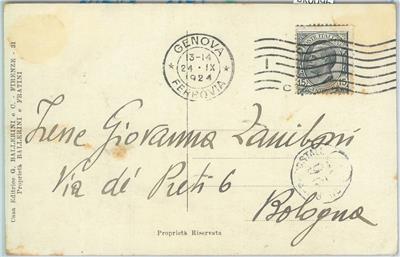 GENOVA
13-14
24·IX
1924
FERROVIA
Irene Giovanna Zaniboni
Via de' Preti 6
Bologna
Proprietà Riservata
Casa Editrice G. BALLERINI e C. - FIRENZE - 31
Proprietà BALLERINI e FRATINI